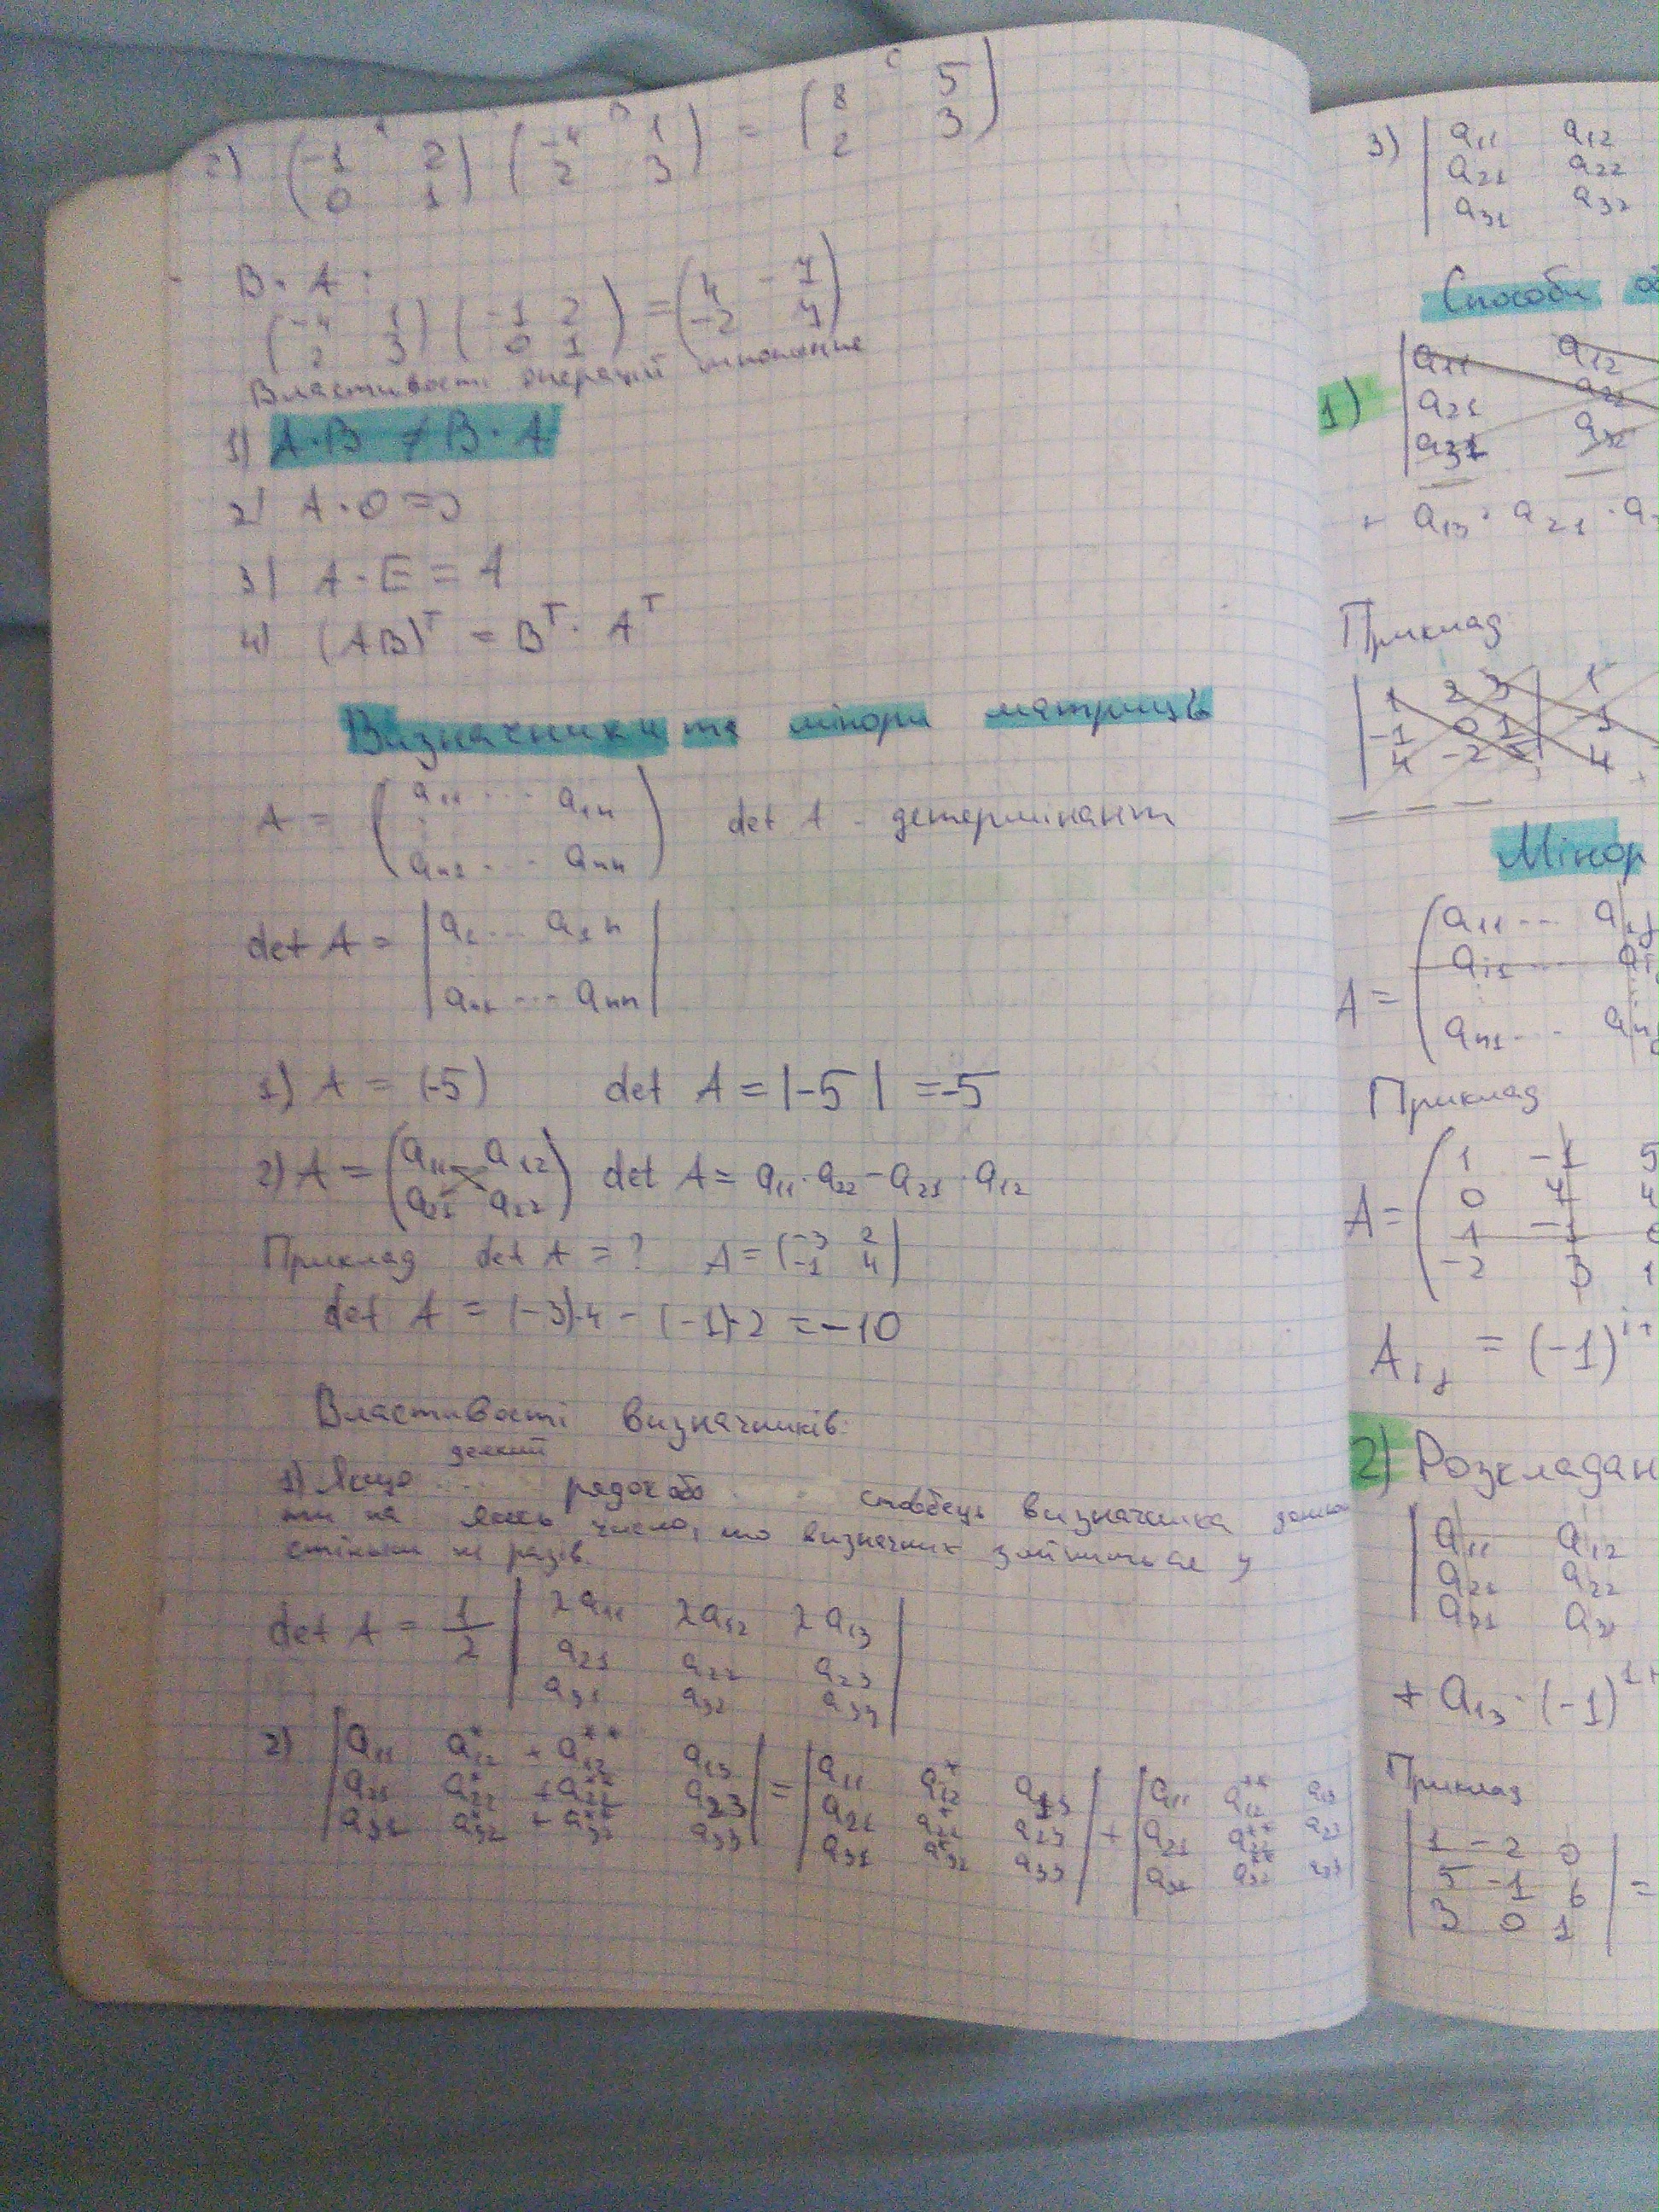 2) (-1 2 / 0 1) (-4 1 / 2 3) = (8 5 / 2 3)
B · A :
(-4 1 / 2 3) (-1 2 / 0 1) = (4 -7 / -2 7)
Властивості операцій множення
1) A·B ≠ B·A
2) A·0=0
3) A·E = A
4) (AB)ᵀ = Bᵀ · Aᵀ
Визначники та мінори матриць
A = (a₁₁ ... a₁ₙ / ⋮ / aₙ₁ ... aₙₙ) det A - детермінант
det A = |a₁ ... a₁ₙ / ⋮ / aₙ₁ ... aₙₙ|
1) A = (-5) det A = |-5| = -5
2) A = (a₁₁ a₁₂ / a₂₁ a₂₂) det A = a₁₁·a₂₂ - a₂₁·a₁₂
Приклад det A = ? A = (-3 2 / -1 4)
det A = (-3)·4 - (-1)·2 = -10
Властивості визначників:
деякий
1) Якщо ... рядок або ... стовбець визначника
ти на якесь число, то визначник зміниться у
стільки ж разів.
det A = 1/λ |λa₁₁ λa₁₂ λa₁₃ / a₂₁ a₂₂ a₂₃ / a₃₁ a₃₂ a₃₃|
2) |a₁₁ a₁₂* + a₁₂** a₁₃ / a₂₁ a₂₂* + a₂₂** a₂₃ / a₃₁ a₃₂* + a₃₂** a₃₃| = |a₁₁ a₁₂* a₁₃ / a₂₁ a₂₂* a₂₃ / a₃₁ a₃₂* a₃₃| + |a₁₁ a₁₂** a₁₃ / a₂₁ a₂₂** a₂₃ / a₃₁ a₃₂** a₃₃|
3) |a₁₁ a₁₂
a₂₁ a₂₂
a₃₁ a₃₂
Способи
1) |a₁₁ a₁₂
a₂₁ a₂₂
a₃₁ a₃₂
+ a₁₃ · a₂₁ ·
Приклад
|1 2 3| 1
-1 0 1| -1
4 -2 | 4
Мінор
A = (a₁₁ ... a₁ⱼ
aᵢ₁ ... aᵢⱼ
aₙ₁ ... aₙⱼ
Приклад
A = (1 -1 5
0 7 4
1 -1
-2 3 1
Aᵢⱼ = (-1)ⁱ⁺
2) Розкладан
|a₁₁ a₁₂
a₂₁ a₂₂
a₃₁ a₃₂
+ a₁₃ · (-1)¹⁺
Приклад
|1 -2 0
5 -1 6
3 0 1| =